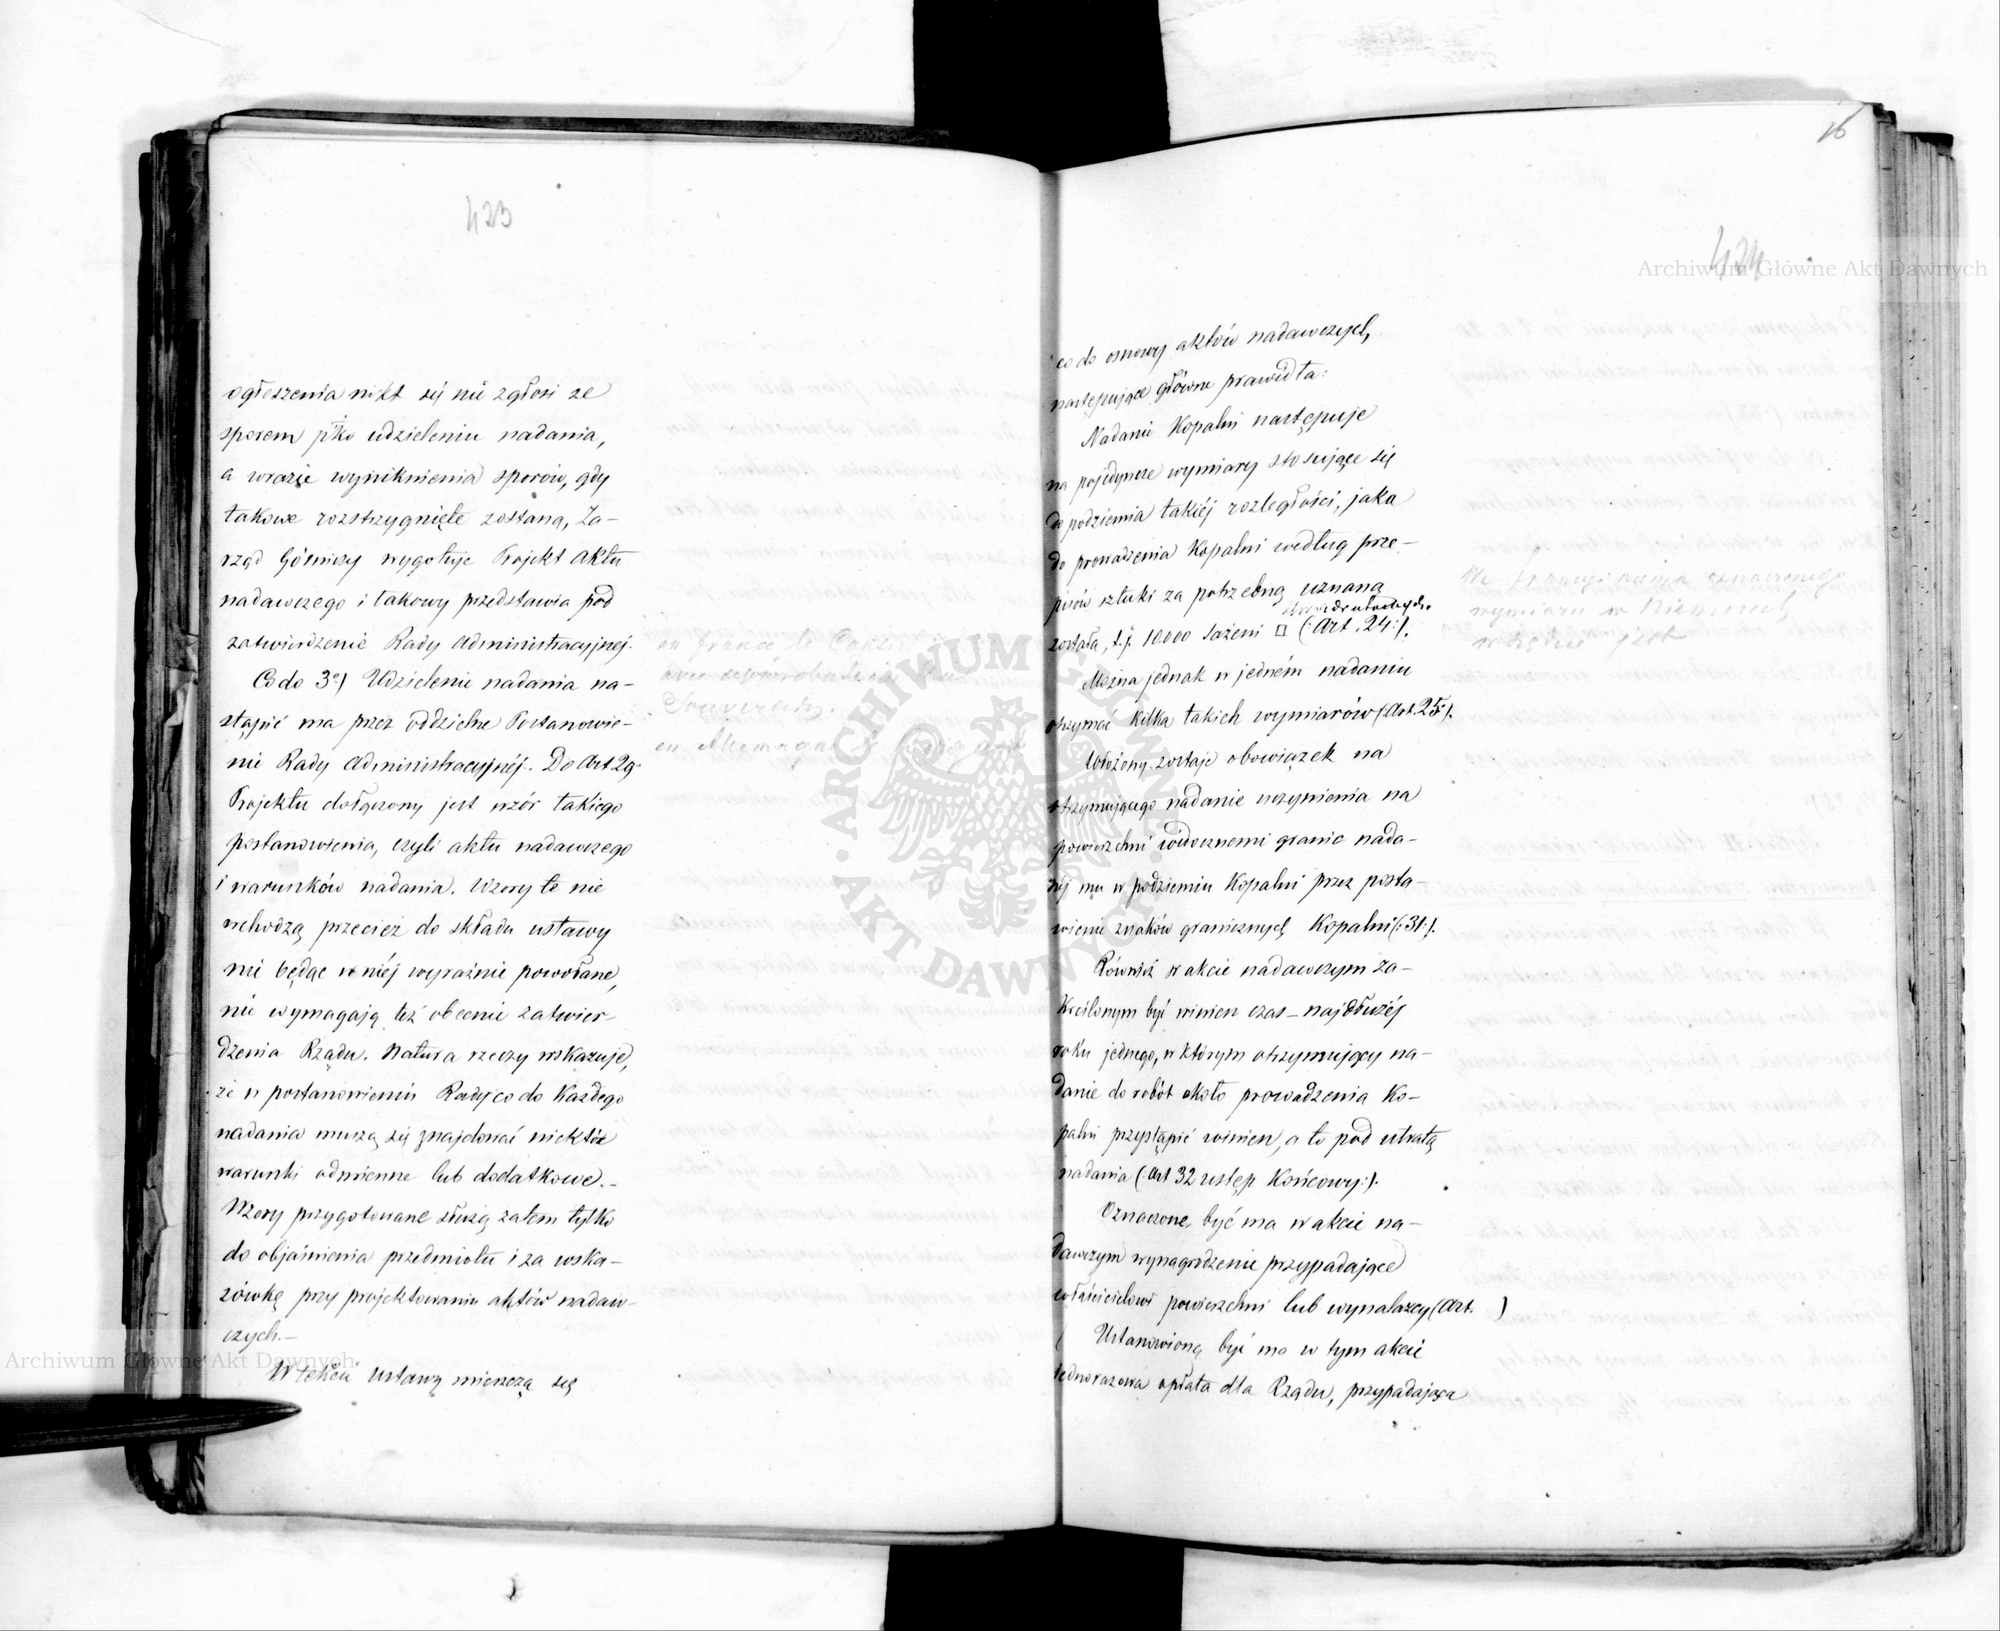 423
ogłoszenia nikt się nie zgłosi ze
sporem p'ko udzieleniu nadania,
a wrazie wyniknienia sporów, gdy
takowe rozstrzygnięte zostaną, Za-
rząd Górniczy wygotuje Projekt aktu
nadawczego i takowy przedstawia pod
zatwierdzenie Rady Administracyjnej.
Co do 3o) Udzielenie nadania na-
stąpić ma przez oddzielne Postanowie-
nie Rady Administracyjnéj. Do Art 29
Projektu dołączony jest wzór takiego
postanowienia, czyli aktu nadawczego
i warunków nadania. Wzory te nie
wchodzą przecież do składu ustawy
nie będąc w niéj wyraźnie powołane,
nie wymagają też obecnie zatwier-
dzenia Rządu. Natura rzeczy wskazuje,
że w postanowieniu Rady co do każdego
nadania muszą się znajdować niektóre
warunki odmienne lub dodatkowe.-
Wzory przygotowane służą zatem tylko
do objaśnienia przedmiotu i za wska-
zówkę przy projektowaniu aktów nadaw-
czych.-
W tekście ustawy mieszczą się
en france le
Souverain.
en Allemagne
16
424
co do osnowy aktów nadawczych,
następujące główne prawidła:
Nadanie Kopalni następuje
na pojedyncze wymiary stosujące się
do podziemia takiéj rozległości, jaka
do prowadzenia Kopalni według prze-
pisów sztuki za potrzebną uznaną
kwadratowych.
została, t.j. 10.000 Sażeni □ (:Art. 24:).
Można jednak w jedném nadaniu
otrzymać kilka takich wymiarów (Art. 25:).
Włożony zostaje obowiązek na
otrzymującego nadanie uczynienia na
powierzchni widocznemi granic nada-
néj mu w podziemiu Kopalni przez posta-
wienie znaków granicznych Kopalni (:31:).
Również w akcie nadawczym za-
kreślonym być winien czas - najdłużéj
roku jednego, w którym otrzymujący na-
danie do robót około prowadzenia Ko-
palni przystąpić winien, a to pod utratą
nadania (:Art 32 ustęp Końcowy:).
Oznaczone być ma w akcie na-
dawczym wynagrodzenie przypadające
właścicielowi powierzchni lub wynalazcy (Art. )
Ustanowioną być ma w tym akcie
jednorazowa opłata dla Rządu, przypadająca
wymiaru w Niemczech
jest
Archiwum Główne Akt Dawnych
Archiwum Główne Akt Dawnych
ARCHIWUM GŁÓWNE AKT DAWNYCH